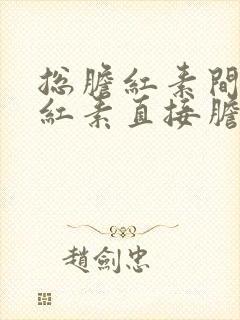 总膽紅素間
紅素直接膽
趙劍忠